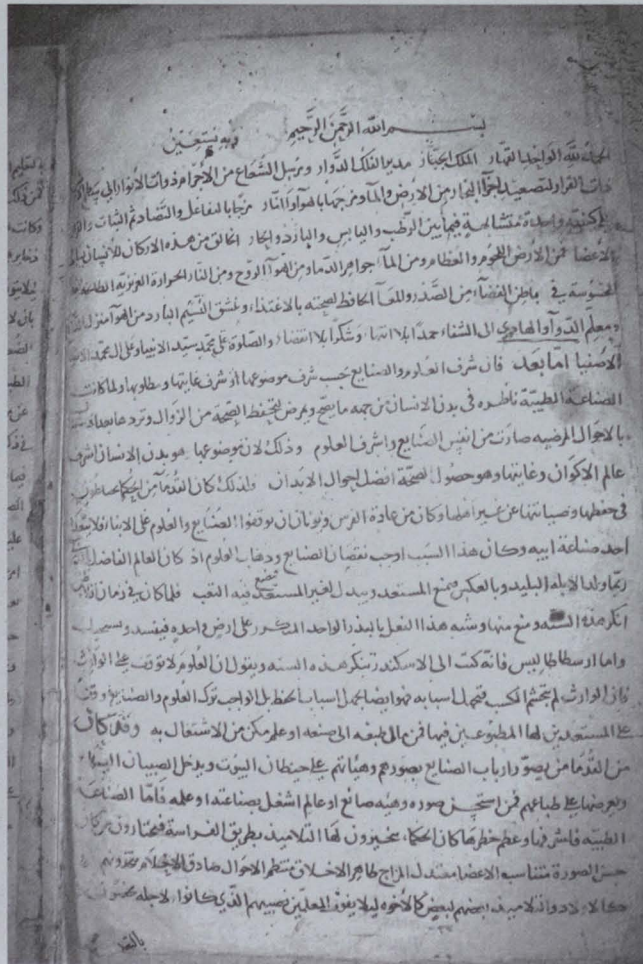 بسم الله الرحمن الرحيم وبه نستعين
الحمد لله الواحد القهار الملك الجبار مدير الفلك الدوار ومرسل الشعاع من الأجرام ذوات الأنوار
ذات القرار لتصعيد اجزآ البخار من الارض والمآ ومزجهما بالهوآ والنار مزجا بالتفاعل والتضاد ثم النبات
كيفية واحدة متشابهة فيما بين الرطب واليابس والبارد والحار الخالق من هذه الاركان للانسان
الاعضا فمن الأرض اللحوم والعظام ومن المآ جواهر الدما ومن الهوآ الروح ومن النار الحرارة الغريزية
في باطن الفضآ من الصدر والمعآ الحافظ لصحته بالاغتذآء وعشق النسيم البارد من الهوآ
ومعلم الدوآ والهادي الى الشفاء حمدا بلا انتها وشكرا بلا انقضاء والصلوة على محمد سيد الانبياء وعلى ال محمد
الاصفيا اما بعد فان شرف العلوم والصنايع بحسب شرف موضوعها او شرف غايتها ومطلوبها ولما كانت
الصناعة الطبية ناظرة في بدن الانسان من جهة ما يصح ويمرض لتحفظ الصحة من الزوال وتردها
بالاحوال المرضيه صارت من انفس الصنايع واشرف العلوم وذلك لان موضوعها هو بدن الانسان اشرف
عالم الاكوان وغايتها وهو حصول لصحة افضل احوال الابدان ولذلك كان القدمآ من الحكما
في حفظها وصيانتها عن غير اهلها وكان من عادة الفرس ويونانان يوقفوا الصنايع والعلوم على الابنا فلا
احد صناعة ابيه وكان هذا السبب اوجب نقصان الصنايع وذهاب العلوم اذ كان العالم الفاضل
ربما ولد الابله البليد وبالعكس فيمنع المستعد ويبذل لغير المستعد فيضيع فيه التعب فلما كان في زمان
انكر هذه السنه ومنع منها وشبه هذا الفعل بالبذر الواحد المتكرر على ارض واحده فيفسد
واما ارسطاطاليس فانه كتب الى الاسكندر ينكر هذه السنه ويقول ان العلوم لا توقف على الوارث
فان الوارث لم يتجشم الكسب فتهمل اسبابه فهو ايضا يهمل اسباب الحفظ بل الواجب ترك العلوم والصنايع وقفا
على المستعدين لها المطبوعين فيها فمن مال طبعه الى صنعه او علم مكن من الاشتغال به وقد كان
من القدما من يصور ارباب الصنايع بصورهم وهيأتهم على حيطان البيوت ويدخل الصبيان اليها
ويعرضها على طباعهم فمن استحسن صوره وهيئه صانع او عالم اشغل بصناعته او علمه فاما الصناعة
الطبيه فلشرفها وعظم خطرها كان الحكما يتخيرون لها التلاميذ بطريق الفراسة فيختارون من كان
حسن الصورة متناسب الاعضا معتدل المزاج طاهر الاخلاق منتظم الاحوال صادق
كالاولاد والتلاميذ بعضهم لبعض كالاخوه ليلا يفوت المعلمين نصيبهم الذي كانوا لاجله